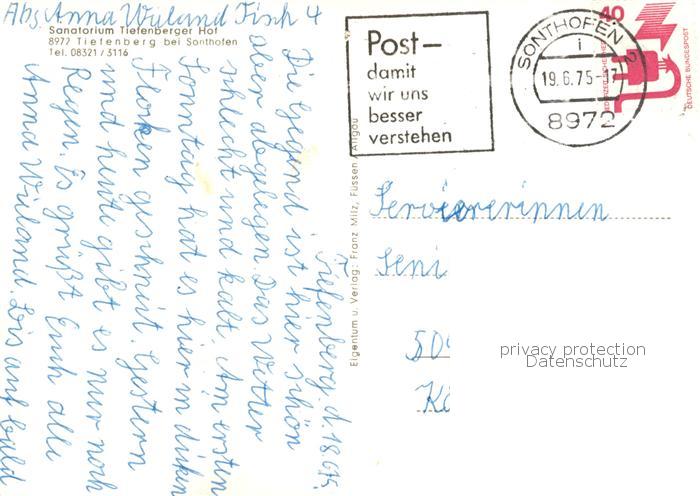 Abs. Anna Wieland Tisch 4
Sanatorium Tiefenberger Hof
8972 Tiefenberg bei Sonthofen
Tel. 08321/3116
Tiefenberg, d. 18.6.75.
Die Gegend ist hier schön
aber abgelegen. Das Wetter
schlecht und kalt. Am ersten
Sonntag hat es hier in dicken
Flocken geschneit. Gestern
und heute gibt es nur noch
Regen. Es grüßt Euch alle
Anna Wieland. Bis auf bald
Eigentum u. Verlag: Franz Milz, Füssen / Allgäu
Post–
damit
wir uns
besser
verstehen
SONTHOFEN 2
i
19.6.75-
8972
40
DEUTSCHE BUNDESPOST
Serviererinnen
Seni
50
Kö
privacy protection
Datenschutz